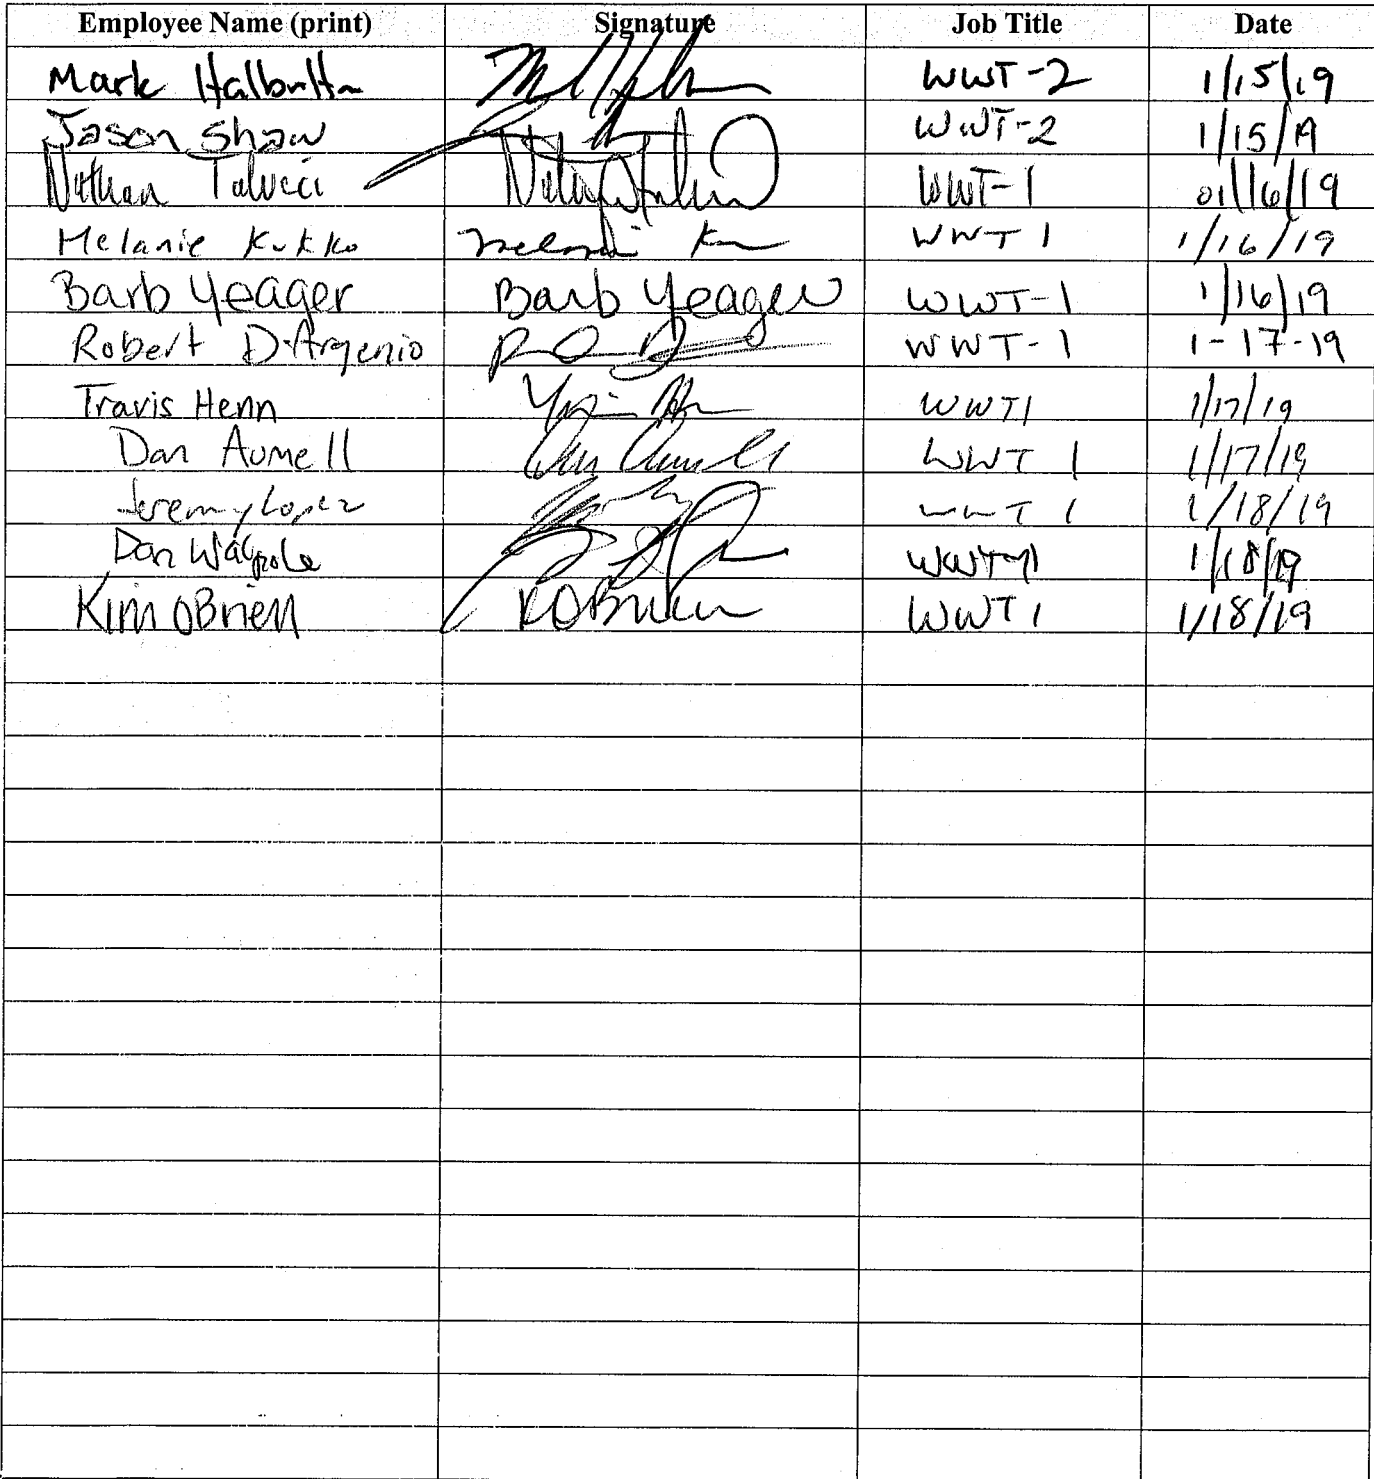 Employee Name (print) Signature Job Title Date
Mark WWT-2 1/15/19
Jason Shaw WWT-2 1/15/19
Nathan Talucci WWT-1 01/16/19
Melanie Kukko WWT 1 1/16/19
Barb Yeager Barb Yeager WWT-1 1/16/19
Robert D'Argenio WWT-1 1-17-19
Travis Henn WWT1 1/17/19
Dan Aumell WWT 1 1/17/19
Jeremy Lopez WWT 1 1/18/19
Dan Walpole WWT-1 1/18/19
Kim OBrien KOBrien WWT1 1/18/19